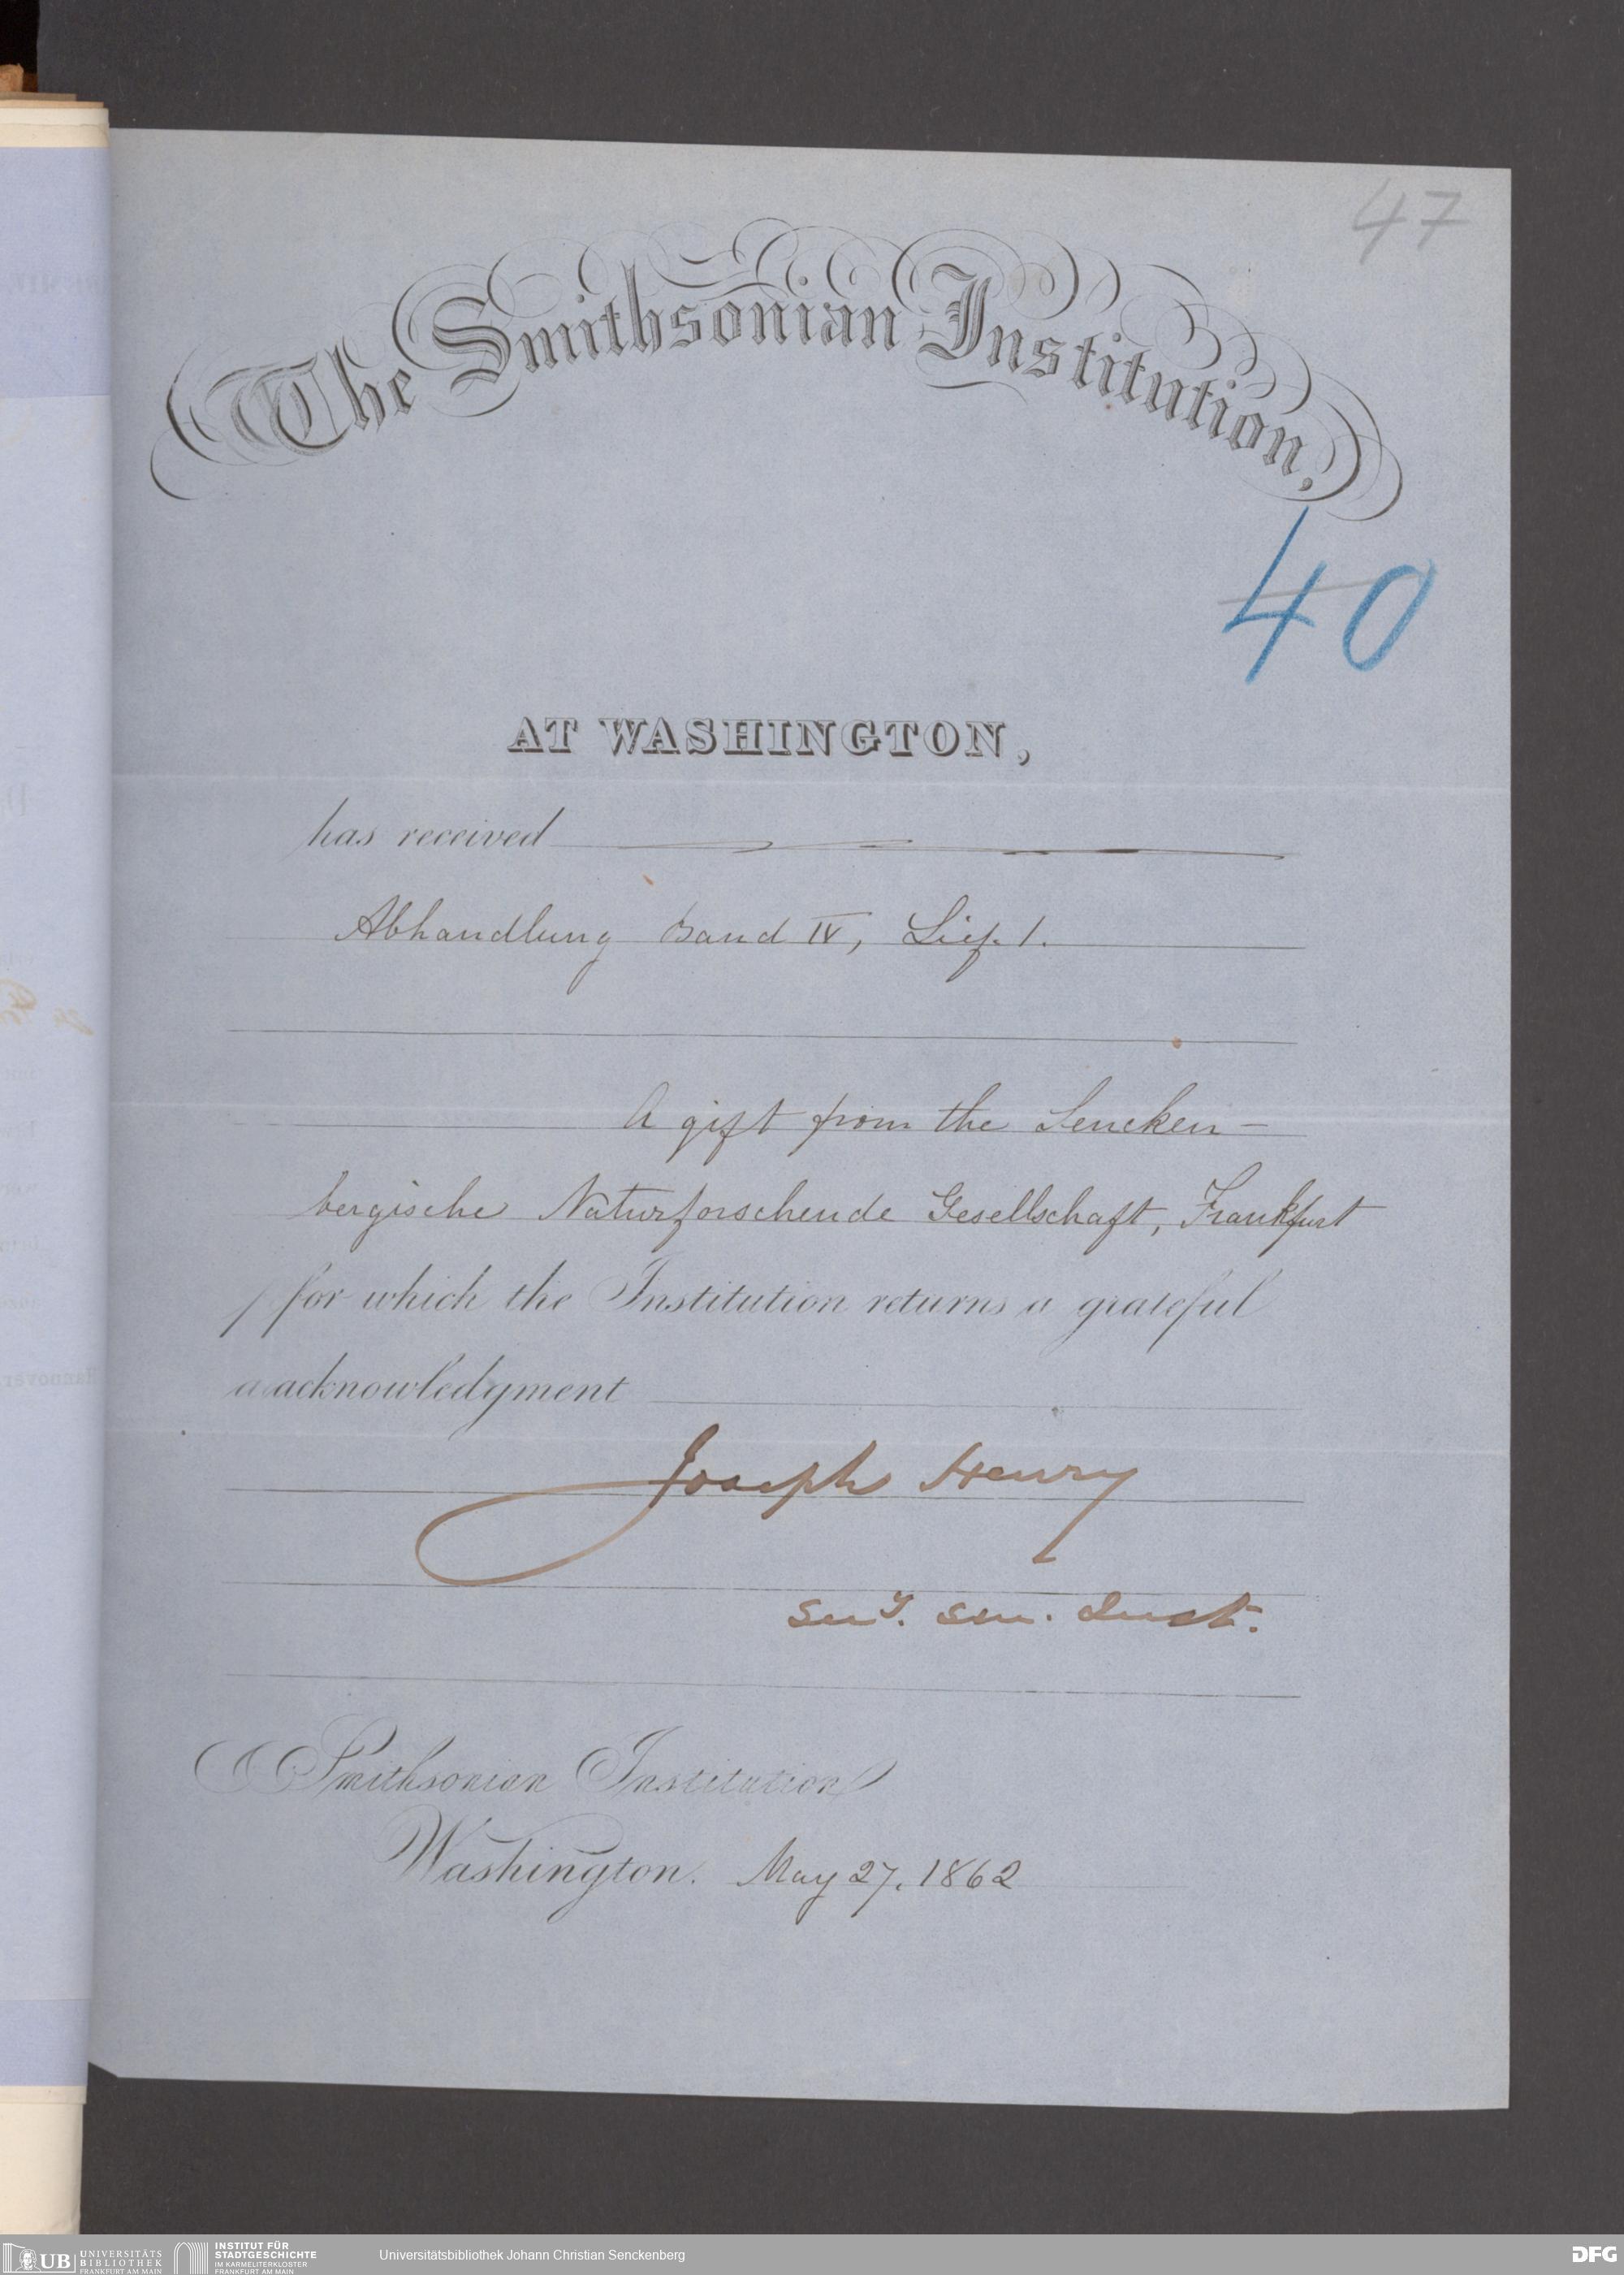 47
The Smithsonian Institution,
40
AT WASHINGTON,
has received
Abhandlung Band IV, Lief. 1.
A gift from the Sencken-
bergische Naturforschende Gesellschaft, Frankfurt
for which the Institution returns a grateful
acknowledgment
Joseph Henry
Secy. Sm. Inst.
Smithsonian Institution
Washington. May 27. 1862
UB UNIVERSITÄTS
BIBLIOTHEK
FRANKFURT AM MAIN
INSTITUT FÜR
STADTGESCHICHTE
IM KARMELITERKLOSTER
FRANKFURT AM MAIN
Universitätsbibliothek Johann Christian Senckenberg
DFG